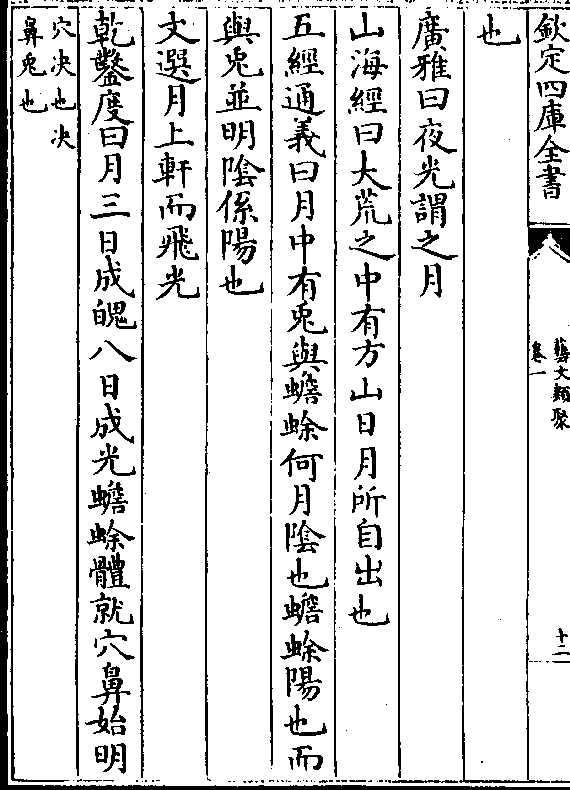 欽定四庫全書
藝文類聚
卷一
十二
也
廣雅曰夜光謂之月
山海經曰大荒之中有方山日月所自出也
五經通義曰月中有兎與蟾蜍何月陰也蟾蜍陽也而
與兎並明陰係陽也
文選月上軒而飛光
乾鑿度曰月三日成魄八日成光蟾蜍體就穴鼻始明
穴决也决
鼻兎也